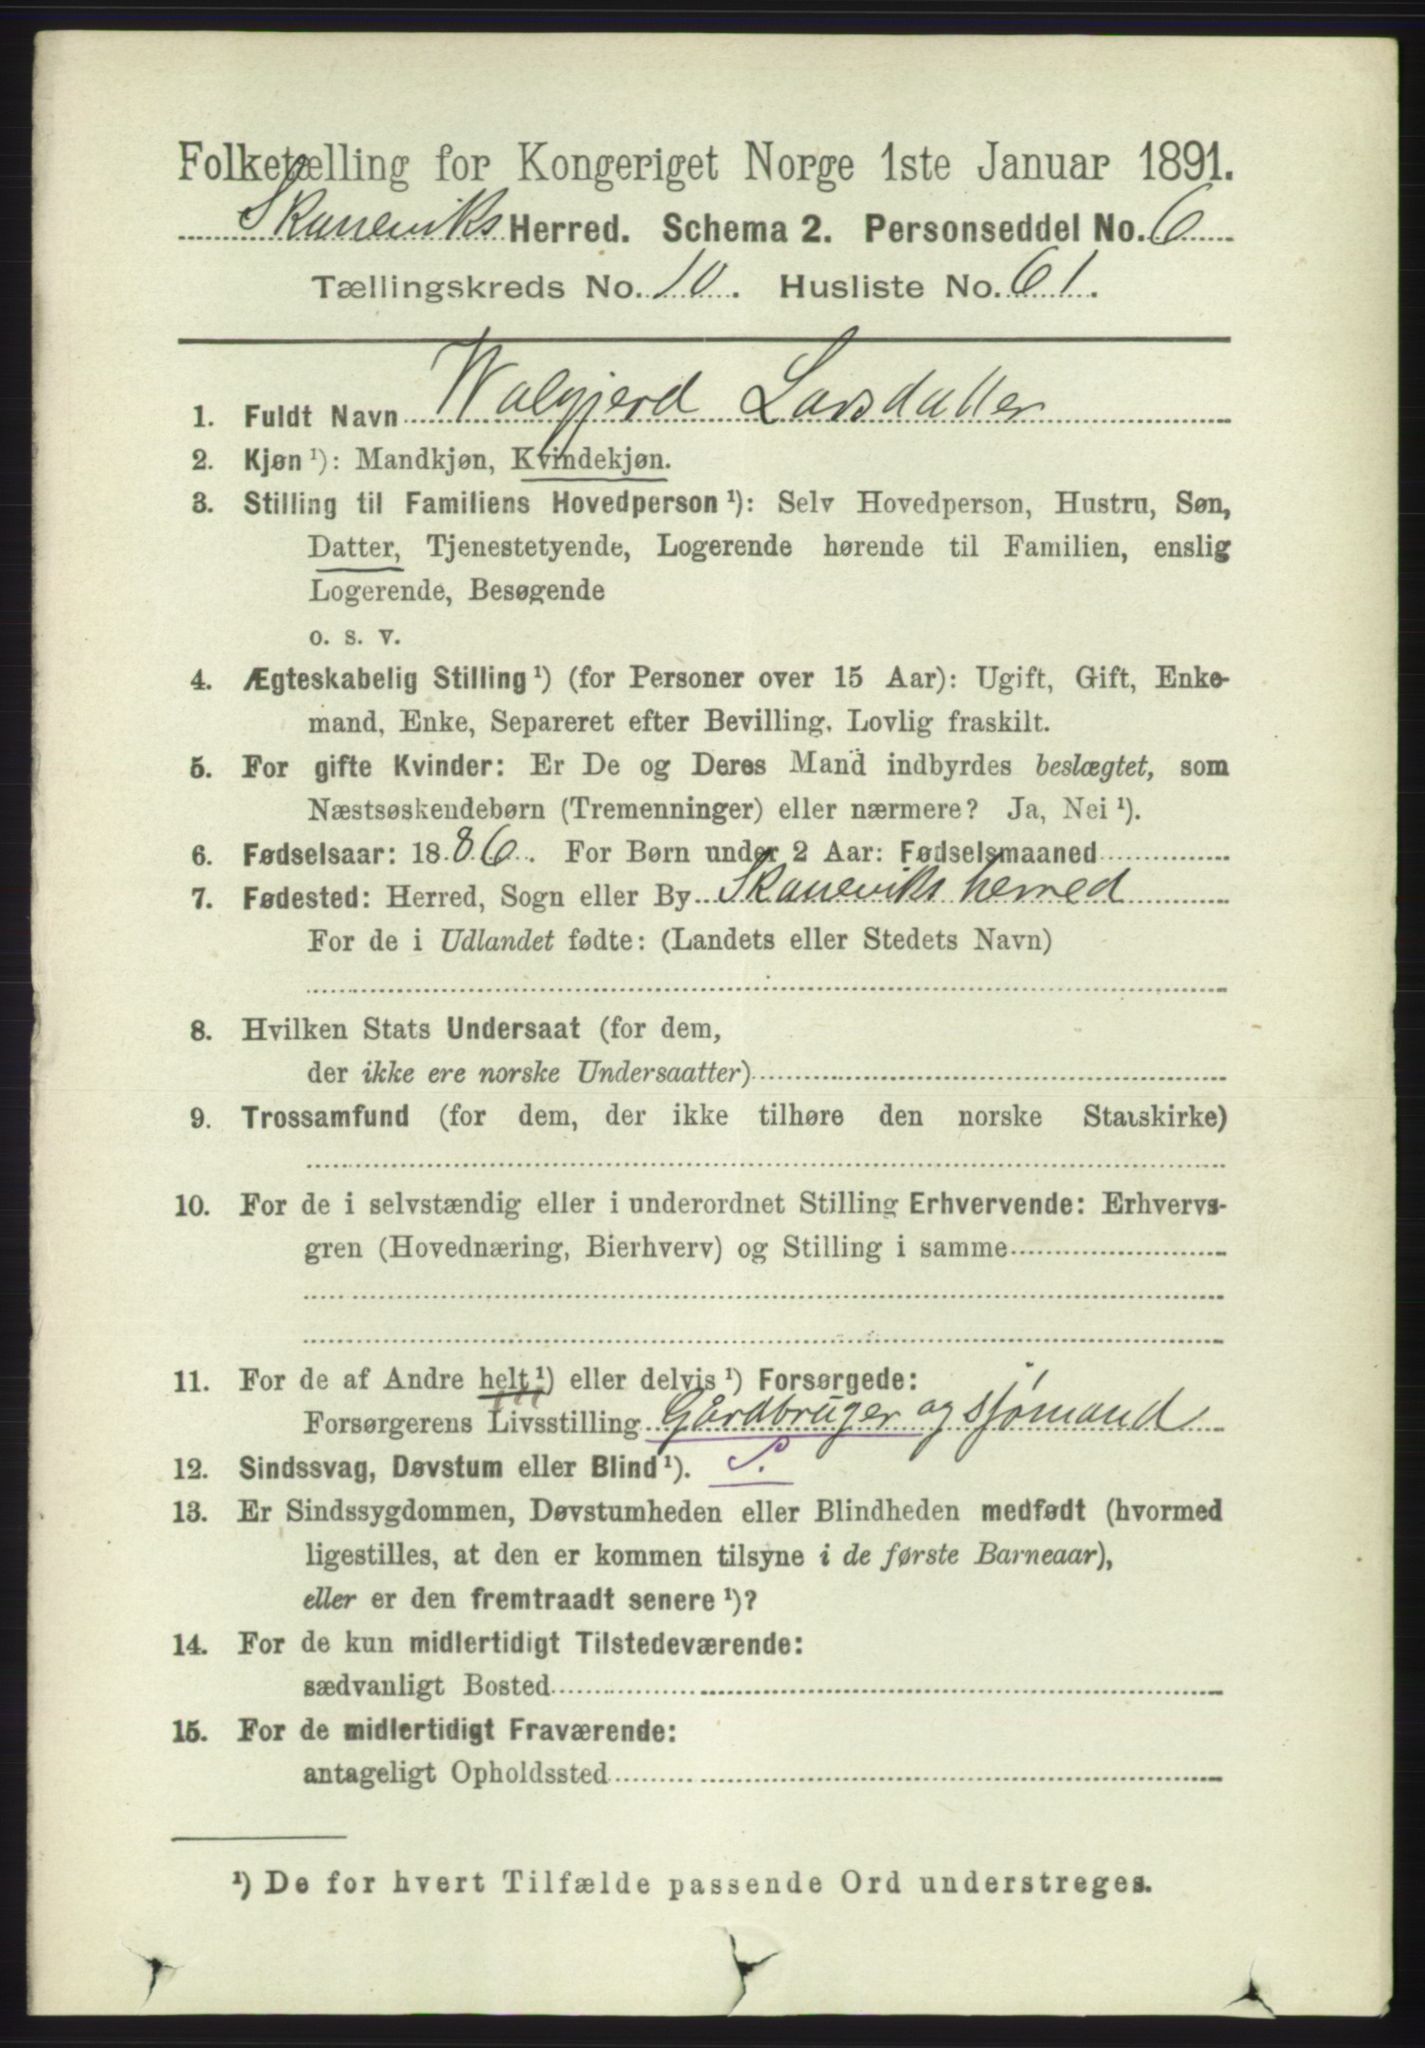 Folketælling for Kongeriget Norge 1ste Januar 1891.
Skaneviks Herred. Schema 2. Personseddel No. 6
Tællingskreds No. 10. Husliste No. 61.
1. Fuldt Navn Walgjerd Larsdatter
2. Kjøn ¹): Mandkjøn, Kvindekjøn.
3. Stilling til Familiens Hovedperson ¹): Selv Hovedperson, Hustru, Søn,
Datter, Tjenestetyende, Logerende hørende til Familien, enslig
Logerende, Besøgende
o. s. v.
4. Ægteskabelig Stilling ¹) (for Personer over 15 Aar): Ugift, Gift, Enke-
mand, Enke, Separeret efter Bevilling. Lovlig fraskilt.
5. For gifte Kvinder: Er De og Deres Mand indbyrdes beslægtet, som
Næstsøskendebørn (Tremenninger) eller nærmere? Ja, Nei ¹).
6. Fødselsaar: 1886. For Børn under 2 Aar: Fødselsmaaned
7. Fødested: Herred, Sogn eller By Skaneviks herred
For de i Udlandet fødte: (Landets eller Stedets Navn)
8. Hvilken Stats Undersaat (for dem,
der ikke ere norske Undersaatter)
9. Trossamfund (for dem, der ikke tilhøre den norske Statskirke)
10. For de i selvstændig eller i underordnet Stilling Erhvervende: Erhvervs-
gren (Hovednæring, Bierhverv) og Stilling i samme
11. For de af Andre helt ¹) eller delvis ¹) Forsørgede:
Forsørgerens Livsstilling Gårdbruger og sjømand
12. Sindssvag, Døvstum eller Blind ¹). S.
13. Er Sindssygdommen, Døvstumheden eller Blindheden medfødt (hvormed
ligestilles, at den er kommen tilsyne i de første Barneaar),
eller er den fremtraadt senere ¹)?
14. For de kun midlertidigt Tilstedeværende:
sædvanligt Bosted
15. For de midlertidigt Fraværende:
antageligt Opholdssted
¹) De for hvert Tilfælde passende Ord understreges.